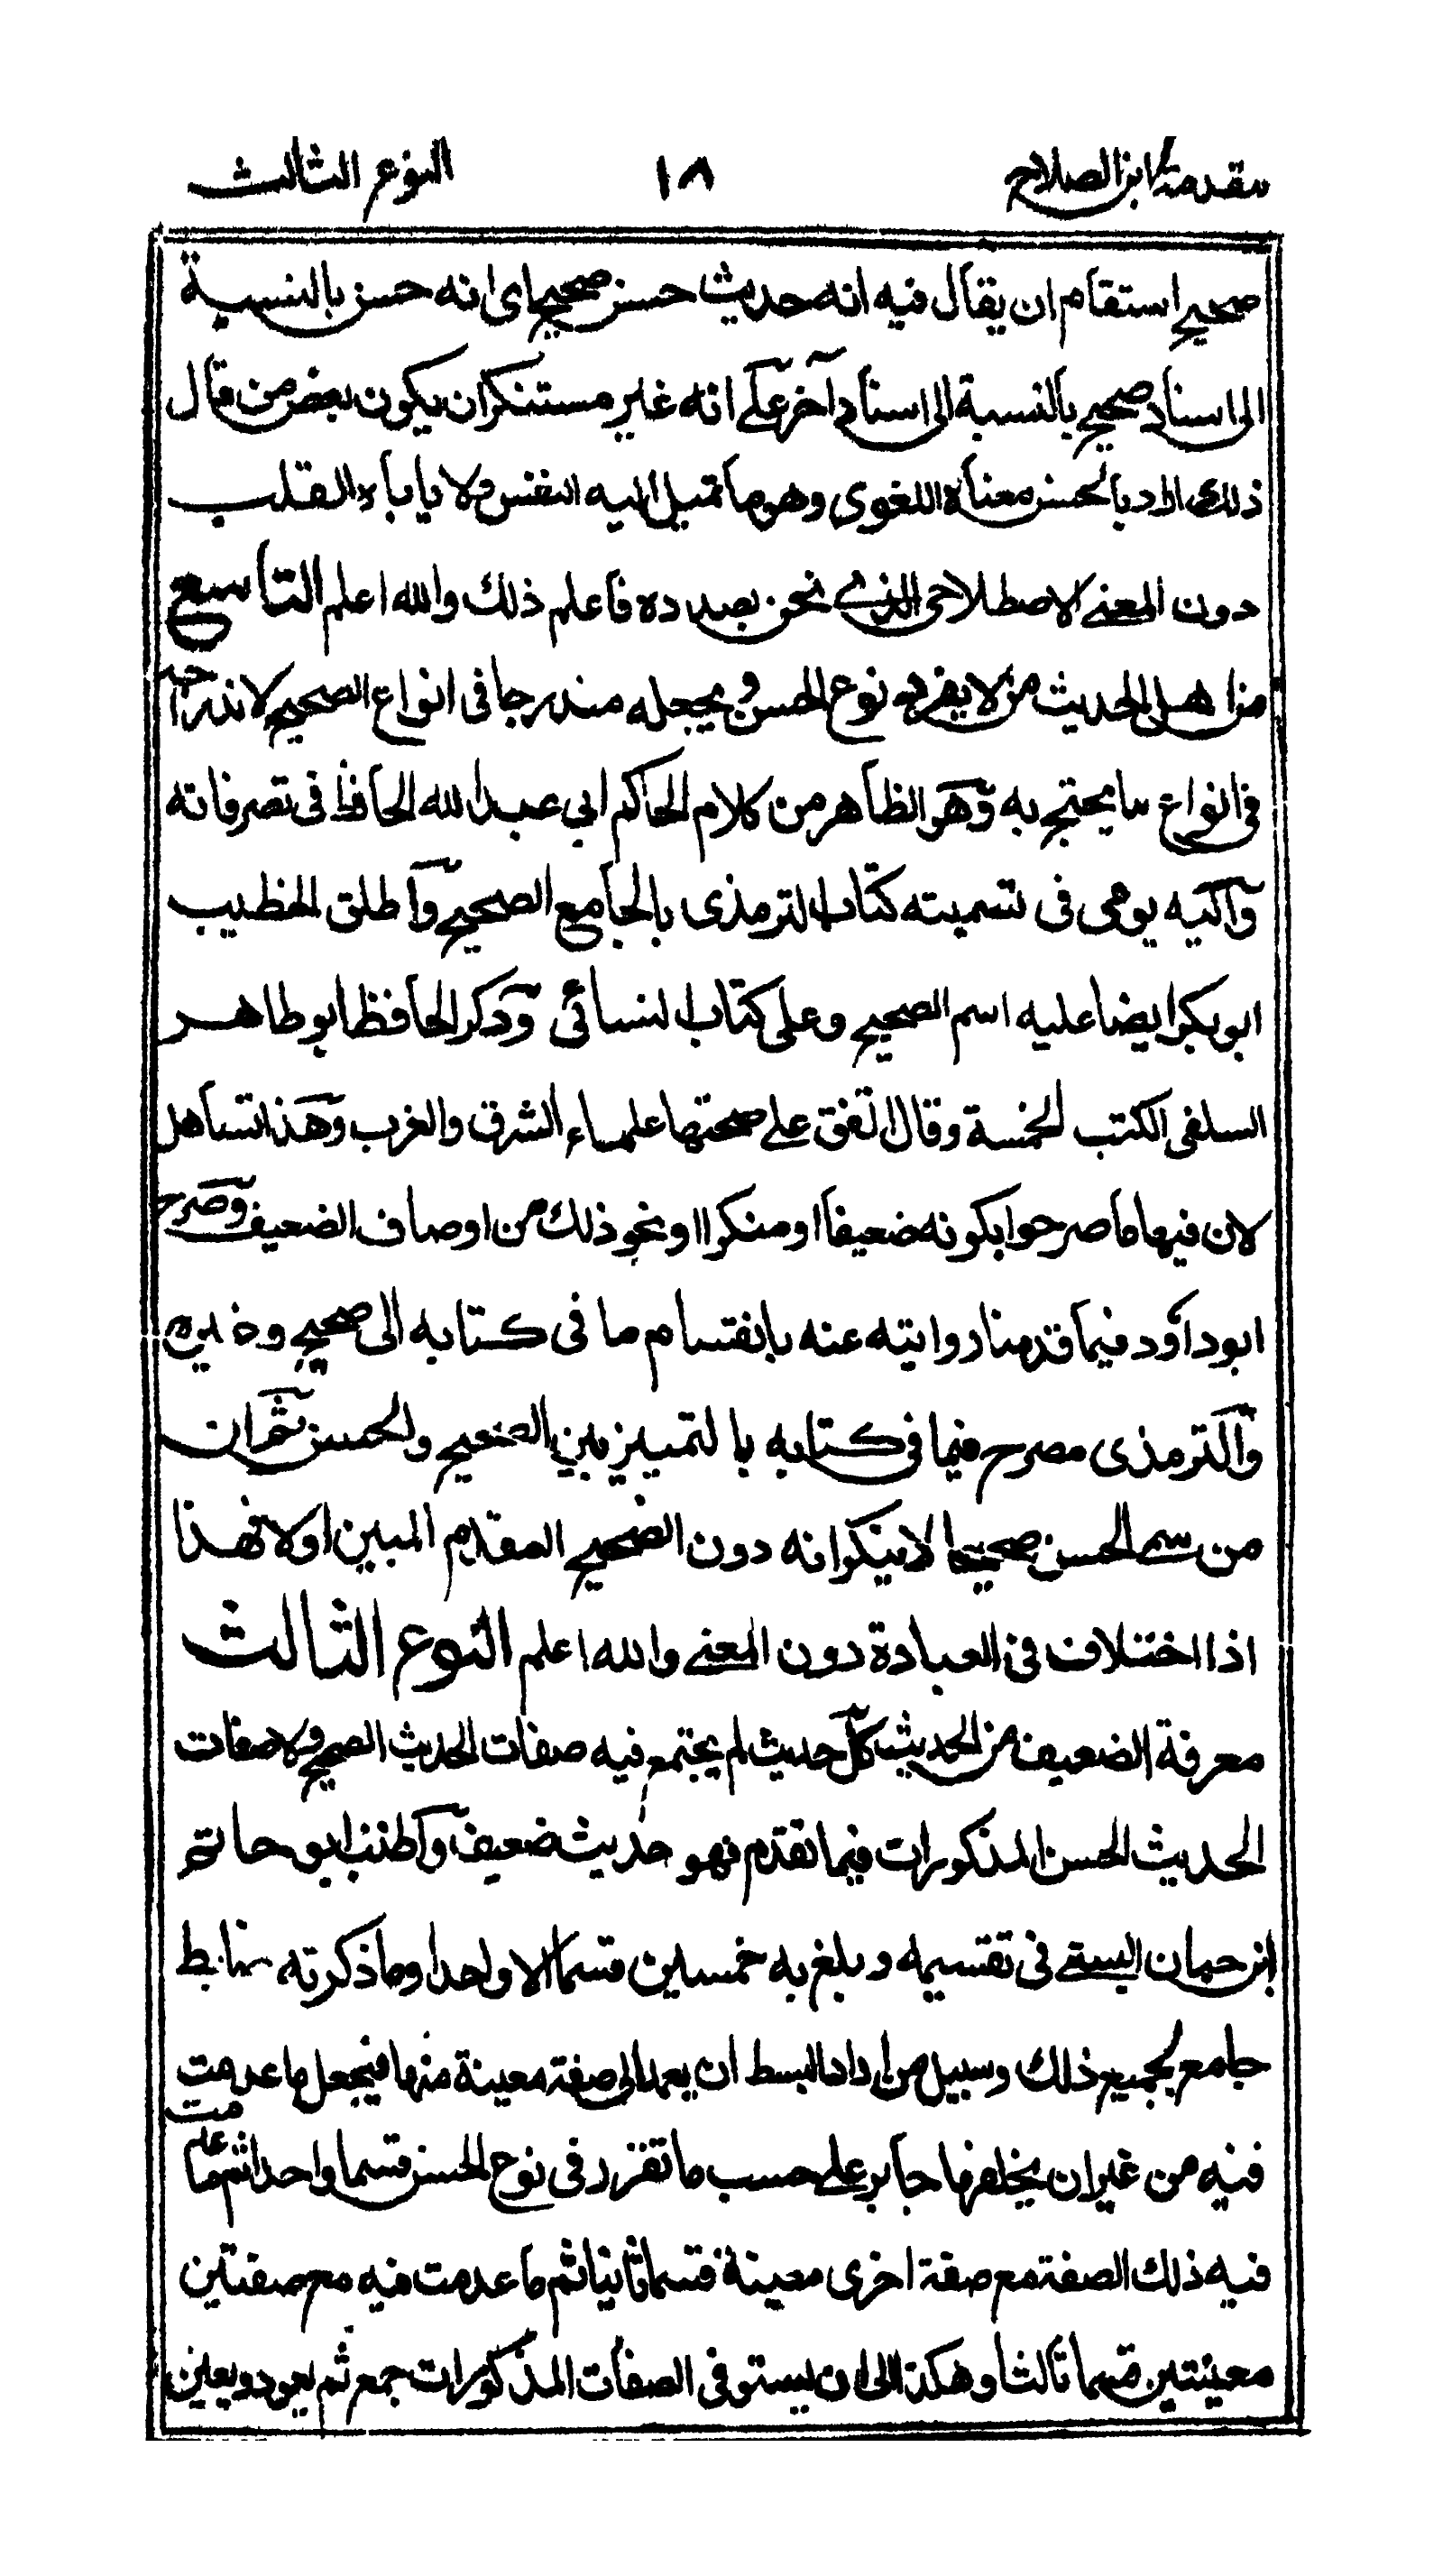 مقدمة ابن الصلاح ١٨ النوع الثالث
صحيح استقام ان يقال فيه انه حديث حسن صحيح اى انه حسن بالنسبة
الى اسناد صحيح بالنسبة الى اسناد آخر على انه غير مستنكر ان يكون بعض من قال
ذلك اراد بالحسن معناه اللغوى وهو ما تميل اليه النفس ولا ياباه القلب
دون المعنى الاصطلاحى الذى نحن بصدده فاعلم ذلك والله اعلم التاسع
من اهل الحديث من لا يفرد نوع الحسن و يجعله مندرجا فى انواع الصحيح لاندراجه
فى انواع ما يحتج به وهو الظاهر من كلام الحاكم ابي عبد الله الحافظ فى تصرفاته
واليه يومى فى تسميته كتاب الترمذى بالجامع الصحيح واطلق الخطيب
ابو بكر ايضا عليه اسم الصحيح وعلى كتاب النسائى وذكر الحافظ ابو طاهر
السلفى الكتب الخمسة وقال اتفق على صحتها علماء الشرق والغرب وهذا تساهل
لان فيها ما صرحوا بكونه ضعيفا او منكرا او نحو ذلك من اوصاف الضعيف وصرح
ابو داود فيما قدمنا روايته عنه بانقسام ما فى كتابه الى صحيح وغيره
والترمذى مصرح فيما فى كتابه بالتمييز بين الصحيح والحسن ثم ان
من سمى الحسن صحيحا لا ينكر انه دون الصحيح المقدم المبين اولا فهذا
اذا اختلاف فى العبادة دون المعنى والله اعلم النوع الثالث
معرفة الضعيف من الحديث كل حديث لم يجتمع فيه صفات الحديث الصحيح ولا صفات
الحديث الحسن المذكورات فيما تقدم فهو حديث ضعيف واطنب ابو حاتم
ابن حبان البستى فى تقسيمه وبلغ به خمسين قسما الا واحدا وما ذكرته ضابط
جامع لجميع ذلك وسبيل من اراد البسط ان يعمد الى صفة معينة منها فيجعل ما عدمت
فيه من غير ان يخلفها جابر على حسب ما تقرر فى نوع الحسن قسما واحدا ثم ما عدمت
فيه ذلك الصفة مع صفة اخرى معينة قسما ثانيا ثم ما عدمت فيه مع صفتين
معينتين قسما ثالثا وهكذا الى ان يستوفى الصفات المذكورات جمع ثم يعود ويعين